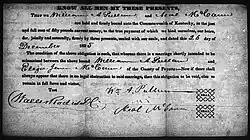 KNOW ALL MEN BY THESE PRESENTS,
That we William A. Pullam and Neal McCann
are held and firmly bound unto the Commonwealth of Kentucky, in the just
and full sum of fifty pounds current money, to the payment of which we bind ourselves, our heirs,
jointly and severally, firmly by these presents, sealed with our seals and dated this 28 day of
December 1835
The condition of the above obligation is such, that whereas there is a marriage shortly intended to be
solemnized between the above bound William A. Pullam and
Eliza Jane McCann of the County of Fayette—Now if there shall
always appear that there is no legal cause to obstruct said marriage, then this obligation to be void, else to
remain in full force and virtue.
Test
Wm A. Pullam
Neal McCann